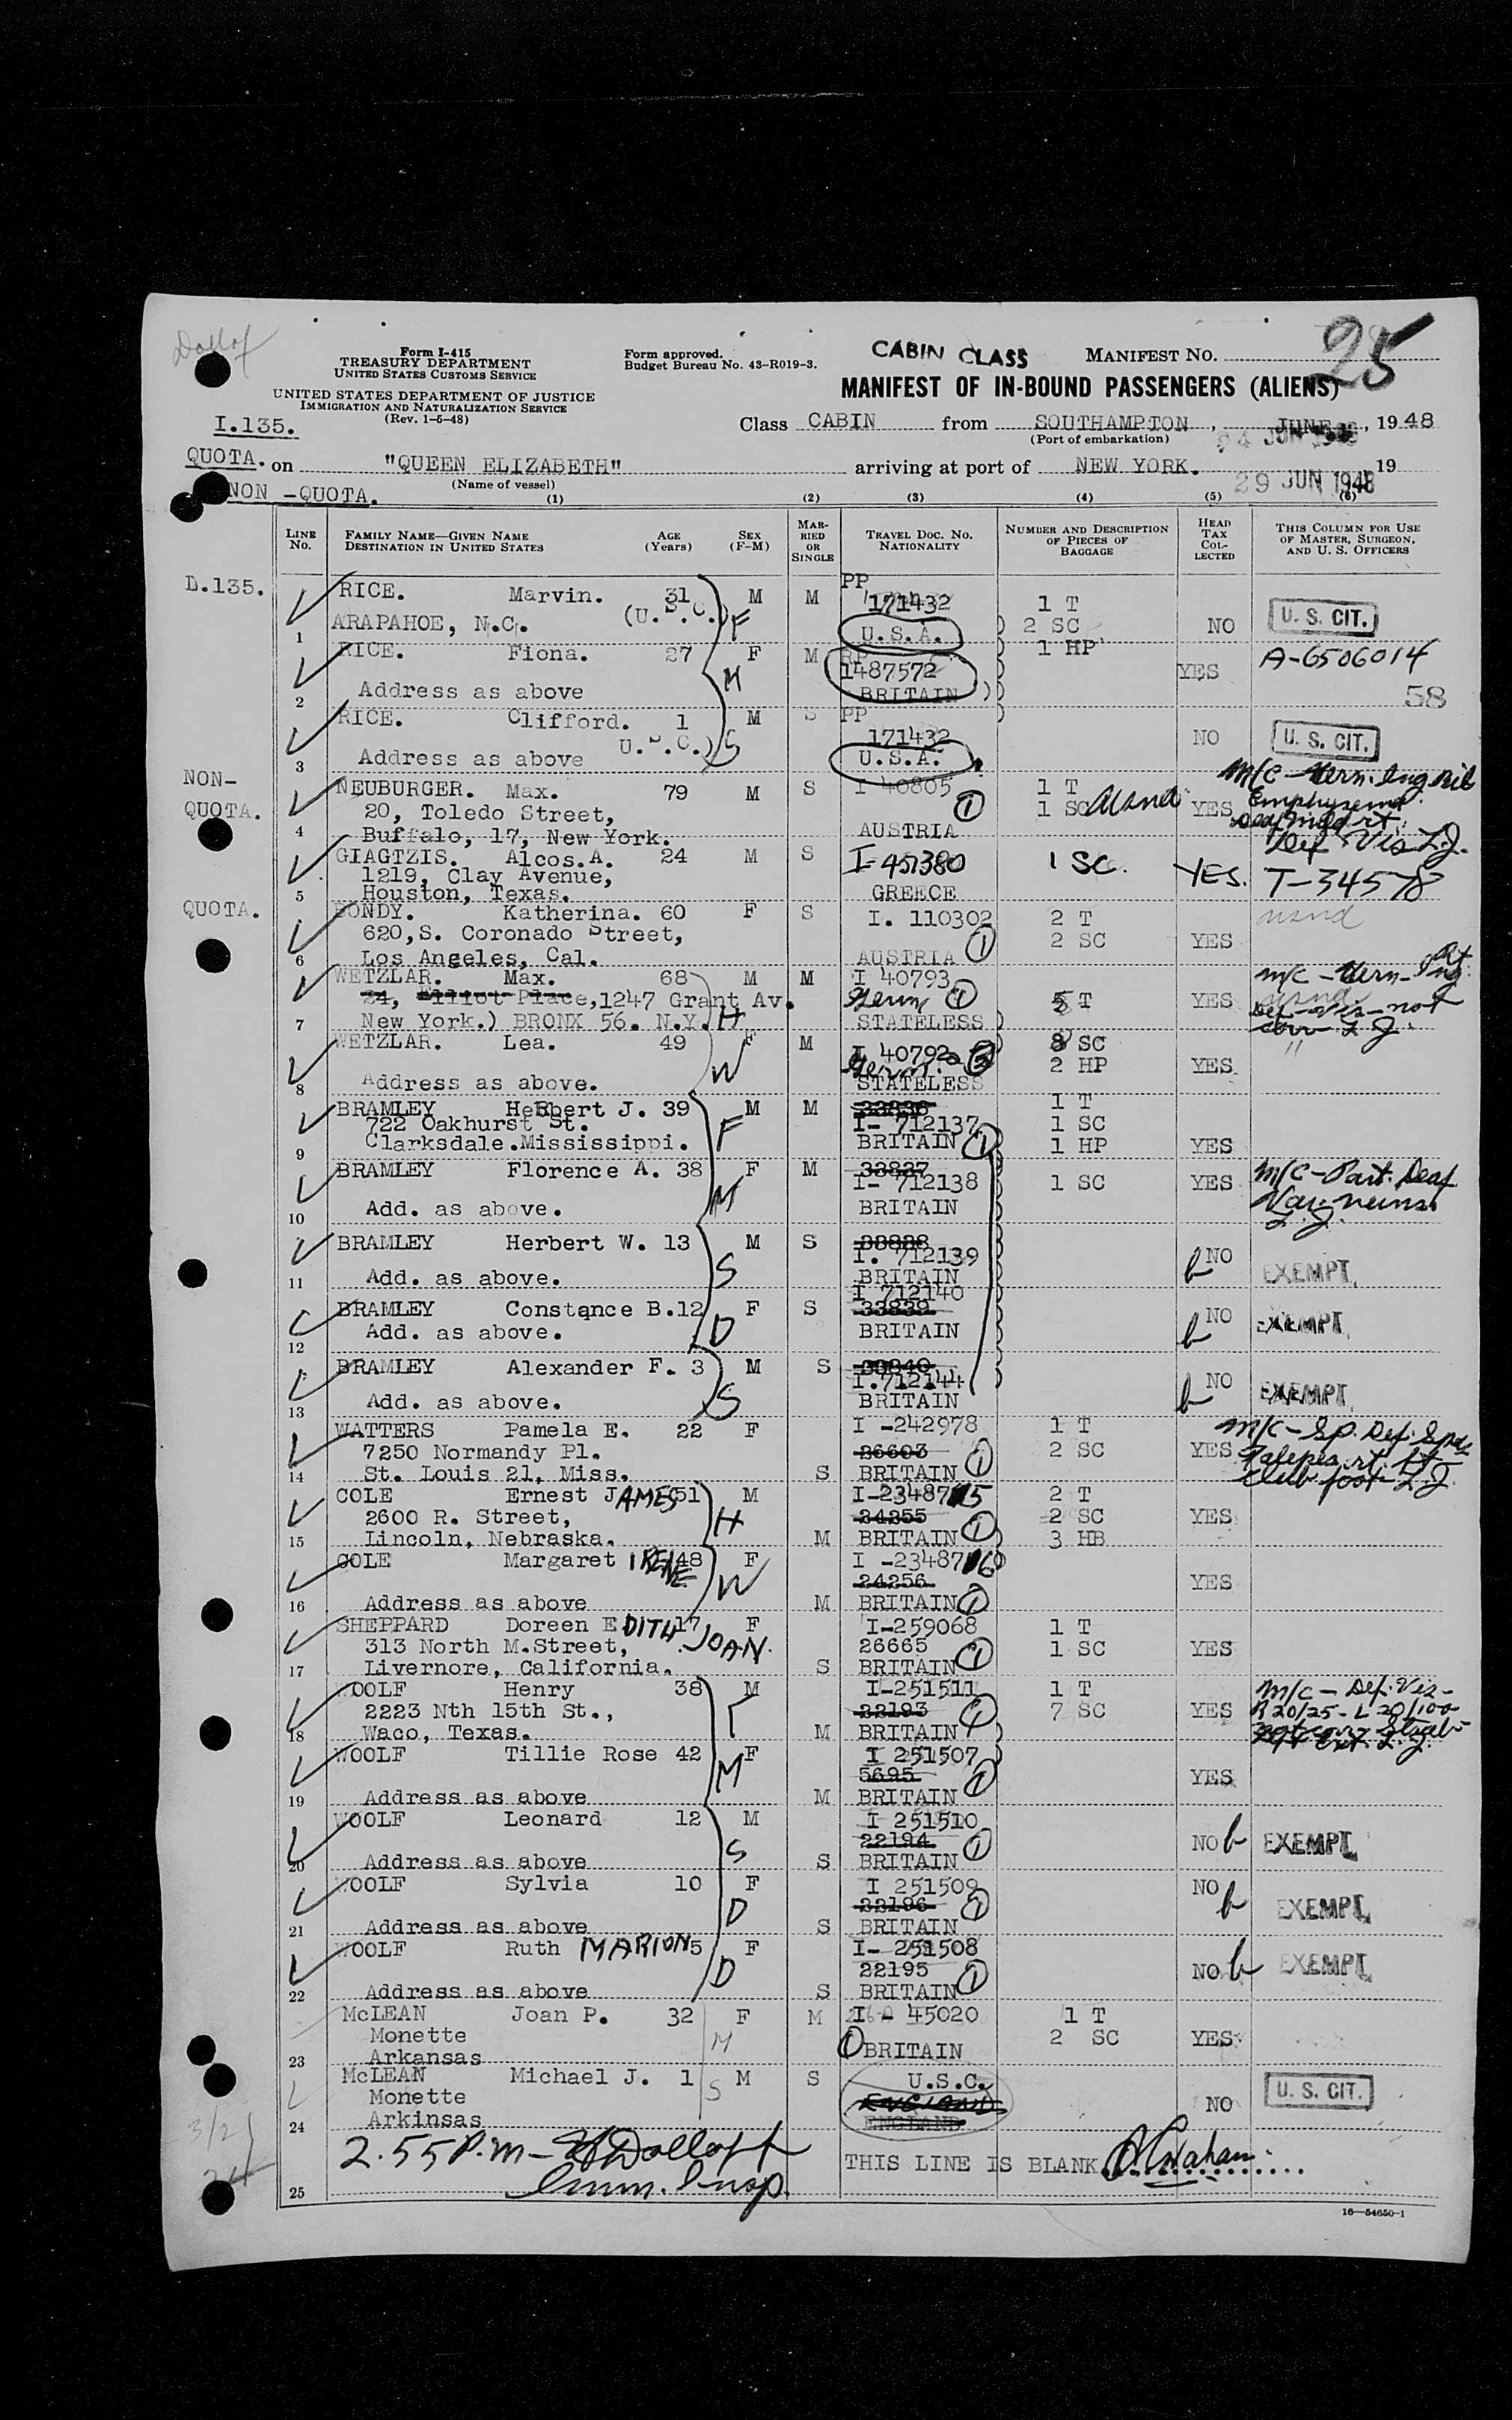 Form I-415
TREASURY DEPARTMENT
UNITED STATES CUSTOMS SERVICE
UNITED STATES DEPARTMENT OF JUSTICE
IMMIGRATION AND NATURALIZATION SERVICE
(Rev. 1-5-48)
Form approved.
Budget Bureau No. 43-R019-3.
CABIN CLASS
MANIFEST NO. 25
MANIFEST OF IN-BOUND PASSENGERS (ALIENS)
I.135.
Class CABIN from SOUTHAMPTON, JUNE, 1948
(Port of embarkation)
24 JUN 1948
QUOTA. on "QUEEN ELIZABETH" arriving at port of NEW YORK. 19
(Name of vessel)
29 JUN 1948
NON -QUOTA.
(1) (2) (3) (4) (5) (6)
LINE No.
FAMILY NAME—GIVEN NAME
DESTINATION IN UNITED STATES
AGE (Years)
SEX (F-M)
MARRIED OR SINGLE
TRAVEL DOC. NO. NATIONALITY
NUMBER AND DESCRIPTION OF PIECES OF BAGGAGE
HEAD TAX COLLECTED
THIS COLUMN FOR USE OF MASTER, SURGEON, AND U. S. OFFICERS
D.135.
RICE. Marvin. 31 M M PP 171432 1 T
1 ARAPAHOE, N.C. (U.S.C.) F U.S.A. 2 SC NO U. S. CIT.
RICE. Fiona. 27 F M 1487572 1 HP A-6506014
2 Address as above M BRITAIN YES 58
RICE. Clifford. 1 M S PP 171432
3 Address as above U.S.C.) S U.S.A. NO U. S. CIT.
NON-QUOTA.
NEUBURGER. Max. 79 M S I 40805 1 T M/C
20, Toledo Street, 1 SC YES Emphysema
4 Buffalo, 17, New York. AUSTRIA Def Vis L.J.
GIAGTZIS. Alcos.A. 24 M S I-451380 1 SC. YES. T-34578
1219, Clay Avenue,
5 Houston, Texas. GREECE
QUOTA.
BONDY. Katherina. 60 F S I. 110302 2 T
620,S. Coronado Street, 2 SC YES
6 Los Angeles, Cal. AUSTRIA
WETZLAR. Max. 68 M M I 40793 M/C
24, Elliot Place,1247 Grant Av. Germ 5 T YES
7 New York.) BRONX 56. N.Y. H STATELESS
WETZLAR. Lea. 49 F M I 40792 8 SC "
8 Address as above. W Germ. STATELESS 2 HP YES
BRAMLEY Herbert J. 39 M M 33836 1 T
722 Oakhurst St. F I- 712137 1 SC
9 Clarksdale.Mississippi. BRITAIN 1 HP YES
BRAMLEY Florence A. 38 F M 33837 M/C-Part. Deaf
I- 712138 1 SC YES Var. veins.
10 Add. as above. M BRITAIN L.J.
BRAMLEY Herbert W. 13 M S 33838
I. 712139 NO
11 Add. as above. S BRITAIN EXEMPT.
I 712140
BRAMLEY Constance B.12 F S 33839 NO
12 Add. as above. D BRITAIN EXEMPT.
BRAMLEY Alexander F. 3 M S 33840
I.712144 NO
13 Add. as above. S BRITAIN EXEMPT.
WATTERS Pamela E. 22 F I -242978 1 T
7250 Normandy Pl. 26603 2 SC YES
14 St. Louis 21, Miss. S BRITAIN Club foot L.J.
COLE Ernest JAMES 51 M 2 T
2600 R. Street, H 24255 2 SC YES
15 Lincoln, Nebraska. M BRITAIN 3 HB
COLE Margaret IRENE 48 F
W 24256 YES
16 Address as above M BRITAIN
SHEPPARD Doreen EDITH JOAN. 17 F I-259068 1 T
313 North M.Street, 26665 1 SC YES
17 Livernore, California. S BRITAIN
WOOLF Henry 38 M I-251511 1 T M/C - Def. Vis-
2223 Nth 15th St., F 22193 7 SC YES R 20/25 - L 20/100
18 Waco, Texas. M BRITAIN
WOOLF Tillie Rose 42 F I 251507
M 5695 YES
19 Address as above M BRITAIN
WOOLF Leonard 12 M I 251510
S 22194 NO EXEMPT.
20 Address as above S BRITAIN
WOOLF Sylvia 10 F I 251509 NO
D 22196 EXEMPT.
21 Address as above S BRITAIN
WOOLF Ruth MARION 5 F I- 251508
D 22195 NO EXEMPT.
22 Address as above S BRITAIN
McLEAN Joan P. 32 F M I - 45020 1 T
Monette M 2 SC YES
23 Arkansas BRITAIN
McLEAN Michael J. 1 M S U.S.C.
Monette S ENGLAND NO U. S. CIT.
24 Arkinsas ENGLAND
2.55 P.m - Dolloff
Imm. Insp.
THIS LINE IS BLANK
25
16—54650-1